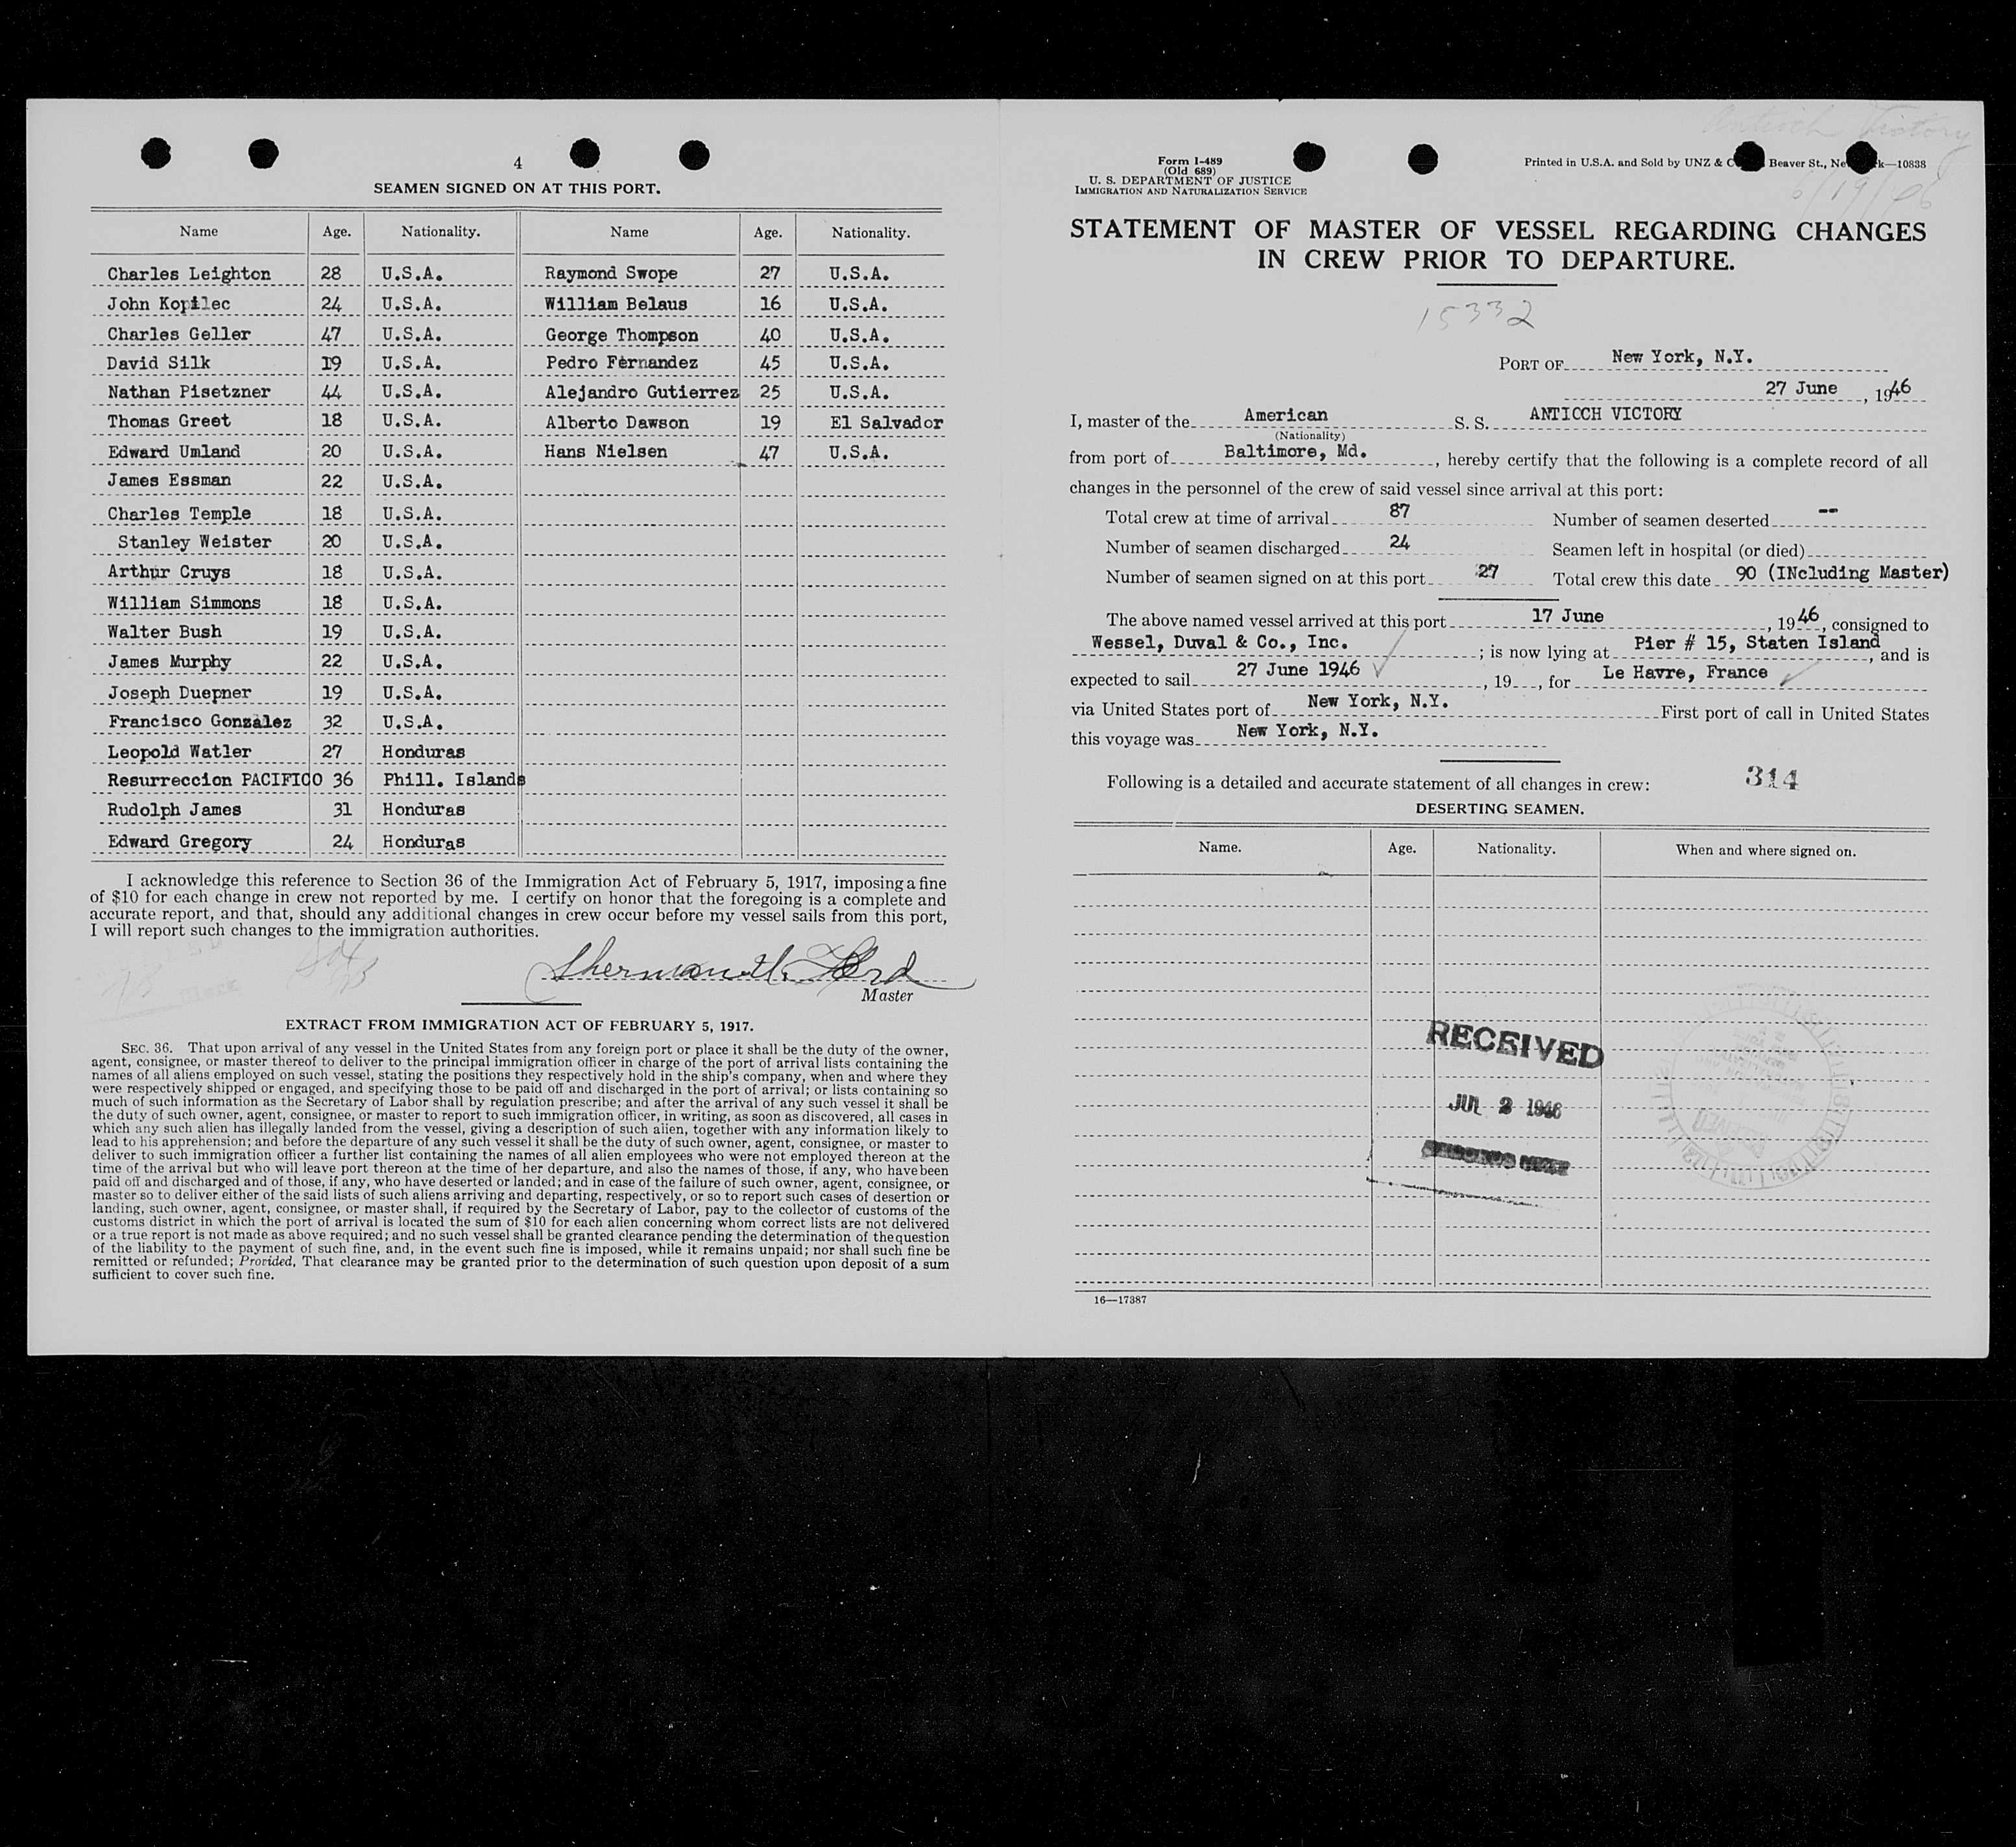 4
SEAMEN SIGNED ON AT THIS PORT.
Name Age. Nationality. Name Age. Nationality.
Charles Leighton 28 U.S.A. Raymond Swope 27 U.S.A.
John Kopilec 24 U.S.A. William Belaus 16 U.S.A.
Charles Geller 47 U.S.A. George Thompson 40 U.S.A.
David Silk 19 U.S.A. Pedro Fernandez 45 U.S.A.
Nathan Pisetzner 44 U.S.A. Alejandro Gutierrez 25 U.S.A.
Thomas Greet 18 U.S.A. Alberto Dawson 19 El Salvador
Edward Umland 20 U.S.A. Hans Nielsen 47 U.S.A.
James Essman 22 U.S.A.
Charles Temple 18 U.S.A.
Stanley Weister 20 U.S.A.
Arthur Cruys 18 U.S.A.
William Simmons 18 U.S.A.
Walter Bush 19 U.S.A.
James Murphy 22 U.S.A.
Joseph Duepner 19 U.S.A.
Francisco Gonzalez 32 U.S.A.
Leopold Watler 27 Honduras
Resurreccion PACIFICO 36 Phill. Islands
Rudolph James 31 Honduras
Edward Gregory 24 Honduras
I acknowledge this reference to Section 36 of the Immigration Act of February 5, 1917, imposing a fine
of $10 for each change in crew not reported by me. I certify on honor that the foregoing is a complete and
accurate report, and that, should any additional changes in crew occur before my vessel sails from this port,
I will report such changes to the immigration authorities.
Sherman H. Ford
Master
EXTRACT FROM IMMIGRATION ACT OF FEBRUARY 5, 1917.
SEC. 36. That upon arrival of any vessel in the United States from any foreign port or place it shall be the duty of the owner,
agent, consignee, or master thereof to deliver to the principal immigration officer in charge of the port of arrival lists containing the
names of all aliens employed on such vessel, stating the positions they respectively hold in the ship's company, when and where they
were respectively shipped or engaged, and specifying those to be paid off and discharged in the port of arrival; or lists containing so
much of such information as the Secretary of Labor shall by regulation prescribe; and after the arrival of any such vessel it shall be
the duty of such owner, agent, consignee, or master to report to such immigration officer, in writing, as soon as discovered, all cases in
which any such alien has illegally landed from the vessel, giving a description of such alien, together with any information likely to
lead to his apprehension; and before the departure of any such vessel it shall be the duty of such owner, agent, consignee, or master to
deliver to such immigration officer a further list containing the names of all alien employees who were not employed thereon at the
time of the arrival but who will leave port thereon at the time of her departure, and also the names of those, if any, who have been
paid off and discharged and of those, if any, who have deserted or landed; and in case of the failure of such owner, agent, consignee, or
master so to deliver either of the said lists of such aliens arriving and departing, respectively, or so to report such cases of desertion or
landing, such owner, agent, consignee, or master shall, if required by the Secretary of Labor, pay to the collector of customs of the
customs district in which the port of arrival is located the sum of $10 for each alien concerning whom correct lists are not delivered
or a true report is not made as above required; and no such vessel shall be granted clearance pending the determination of the question
of the liability to the payment of such fine, and, in the event such fine is imposed, while it remains unpaid; nor shall such fine be
remitted or refunded; Provided, That clearance may be granted prior to the determination of such question upon deposit of a sum
sufficient to cover such fine.
Antioch Victory
6/19/46
Form I-489
(Old 689)
U. S. DEPARTMENT OF JUSTICE
IMMIGRATION AND NATURALIZATION SERVICE
Printed in U.S.A. and Sold by UNZ & C Beaver St., Ne k—10838
STATEMENT OF MASTER OF VESSEL REGARDING CHANGES
IN CREW PRIOR TO DEPARTURE.
15332
PORT OF New York, N.Y.
27 June, 1946
I, master of the American S. S. ANTIOCH VICTORY
(Nationality)
from port of Baltimore, Md., hereby certify that the following is a complete record of all
changes in the personnel of the crew of said vessel since arrival at this port:
Total crew at time of arrival 87 Number of seamen deserted --
Number of seamen discharged 24 Seamen left in hospital (or died)
Number of seamen signed on at this port 27 Total crew this date 90 (INcluding Master)
The above named vessel arrived at this port 17 June, 1946, consigned to
Wessel, Duval & Co., Inc.; is now lying at Pier # 15, Staten Island, and is
expected to sail 27 June 1946, 19, for Le Havre, France
via United States port of New York, N.Y. First port of call in United States
this voyage was New York, N.Y.
Following is a detailed and accurate statement of all changes in crew: 314
DESERTING SEAMEN.
Name. Age. Nationality. When and where signed on.
RECEIVED
JUL 2 1946
16—17387